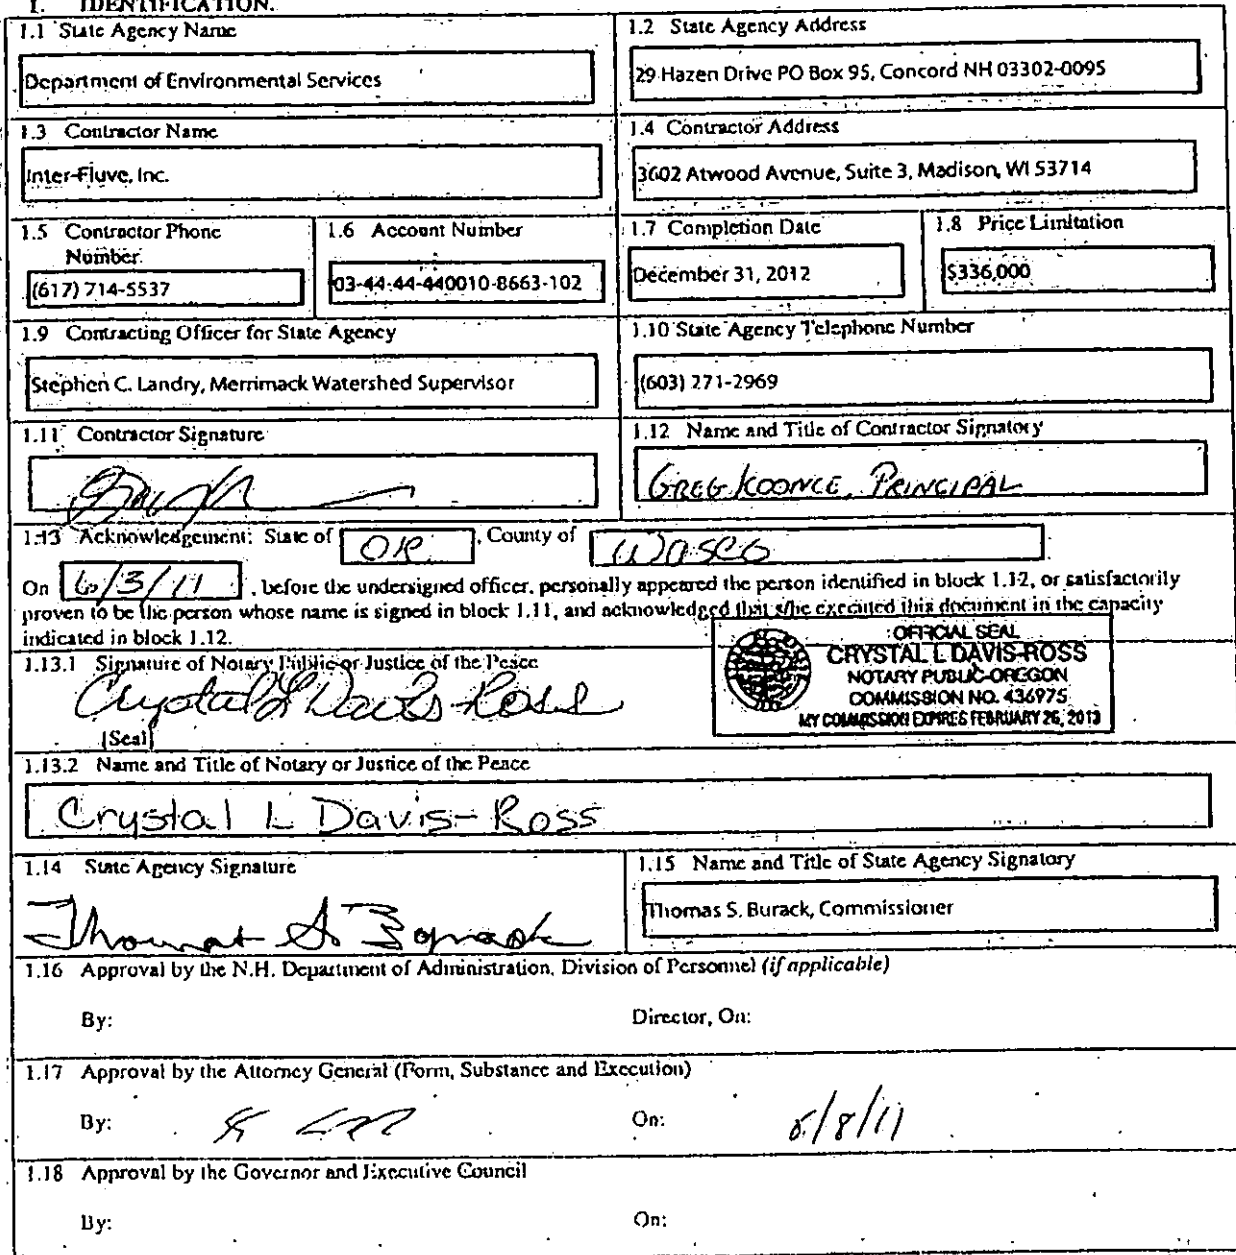 1. IDENTIFICATION.
1.1 State Agency Name
Department of Environmental Services
1.2 State Agency Address
29 Hazen Drive PO Box 95, Concord NH 03302-0095
1.3 Contractor Name
Inter-Fluve, Inc.
1.4 Contractor Address
3602 Atwood Avenue, Suite 3, Madison, WI 53714
1.5 Contractor Phone
Number
(617) 714-5537
1.6 Account Number
03-44-44-440010-8663-102
1.7 Completion Date
December 31, 2012
1.8 Price Limitation
$336,000
1.9 Contracting Officer for State Agency
Stephen C. Landry, Merrimack Watershed Supervisor
1.10 State Agency Telephone Number
(603) 271-2969
1.11 Contractor Signature
1.12 Name and Title of Contractor Signatory
GREG KOONCE, PRINCIPAL
1.13 Acknowledgement: State of OR, County of Wasco
On 6/3/11, before the undersigned officer, personally appeared the person identified in block 1.12, or satisfactorily
proven to be the person whose name is signed in block 1.11, and acknowledged that s/he executed this document in the capacity
indicated in block 1.12.
OFFICIAL SEAL
CRYSTAL L DAVIS-ROSS
NOTARY PUBLIC-OREGON
COMMISSION NO. 436975
MY COMMISSION EXPIRES FEBRUARY 26, 2013
1.13.1 Signature of Notary Public or Justice of the Peace
Crystal L Davis-Ross
[Seal]
1.13.2 Name and Title of Notary or Justice of the Peace
Crystal L Davis-Ross
1.14 State Agency Signature
Thomas S. Burack
1.15 Name and Title of State Agency Signatory
Thomas S. Burack, Commissioner
1.16 Approval by the N.H. Department of Administration, Division of Personnel (if applicable)
By:
Director, On:
1.17 Approval by the Attorney General (Form, Substance and Execution)
By:
On:
1.18 Approval by the Governor and Executive Council
By:
On: